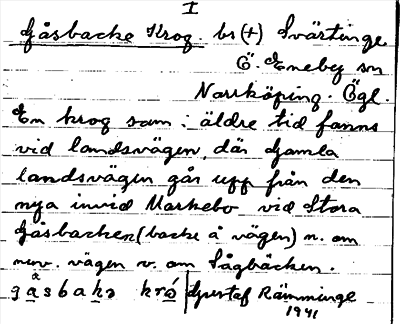 I
Gåsbacke Krog. bs (+) Svärtinge
Ö. Eneby sn
Norrköping. Ögl.
En krog som i äldre tid fanns
vid landsvägen, där gamla
landsvägen går upp från den
nya invid Markebo vid Stora
Gåsbacken (backe å vägen) n. om
nuv. vägen v. om Sågbäcken.
gåsbakə kró Gustaf Rämminge
1941